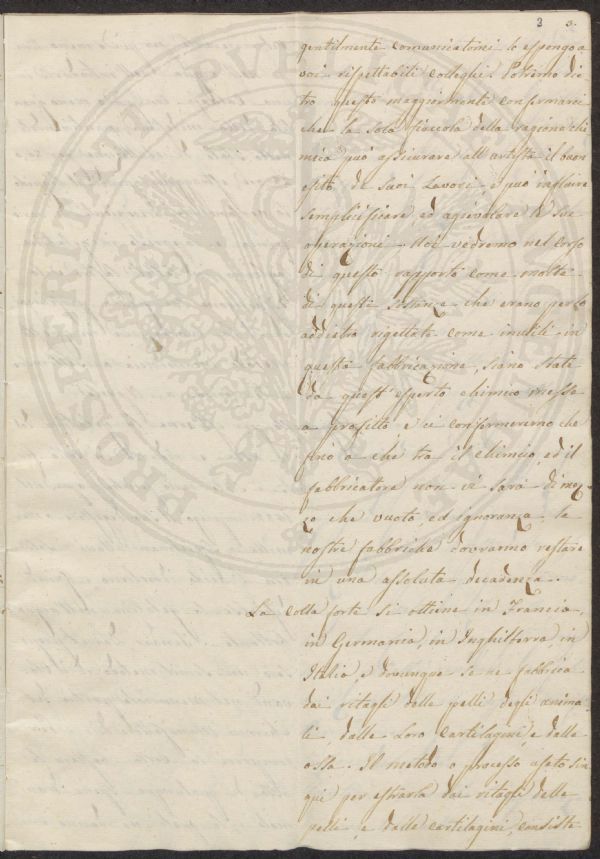 3 3.
gentilmente comunicatomi lo espongo a
voi rispettabili colleghi. Potremo die
tro questo maggiormente confermarci
che la sola fiaccola della ragione chi
mica può assicurare all'artista il buon
esito de' suoi lavori, e può insieme
semplicificare, ed agevolare le sue
operazioni. Noi vedremo nel corso
di questo rapporto come molte
di queste sostanze che erano per lo
addietro rigettate come inutili in
questa fabbricazione, siano state
da quest'esperto chimico messe
a profitto e ci confermeremo che
fino a che tra il chimico, ed il
fabbricatore non vi sarà di mez
zo che vuoto ed ignoranza, le
nostre fabbriche dovranno restare
in una assoluta decadenza.
La colla forte si ottiene in Francia,
in Germania, in Inghilterra, in
Italia, e dovunque se ne fabbrica
dai ritagli delle pelli degli anima
li, dalle loro cartilagini, e dalle
ossa. Il metodo o processo usato sin
qui per estrarla dai ritagli delle
pelli, e dalle cartilagini, consiste
PROSPERITATI PVBLICAE